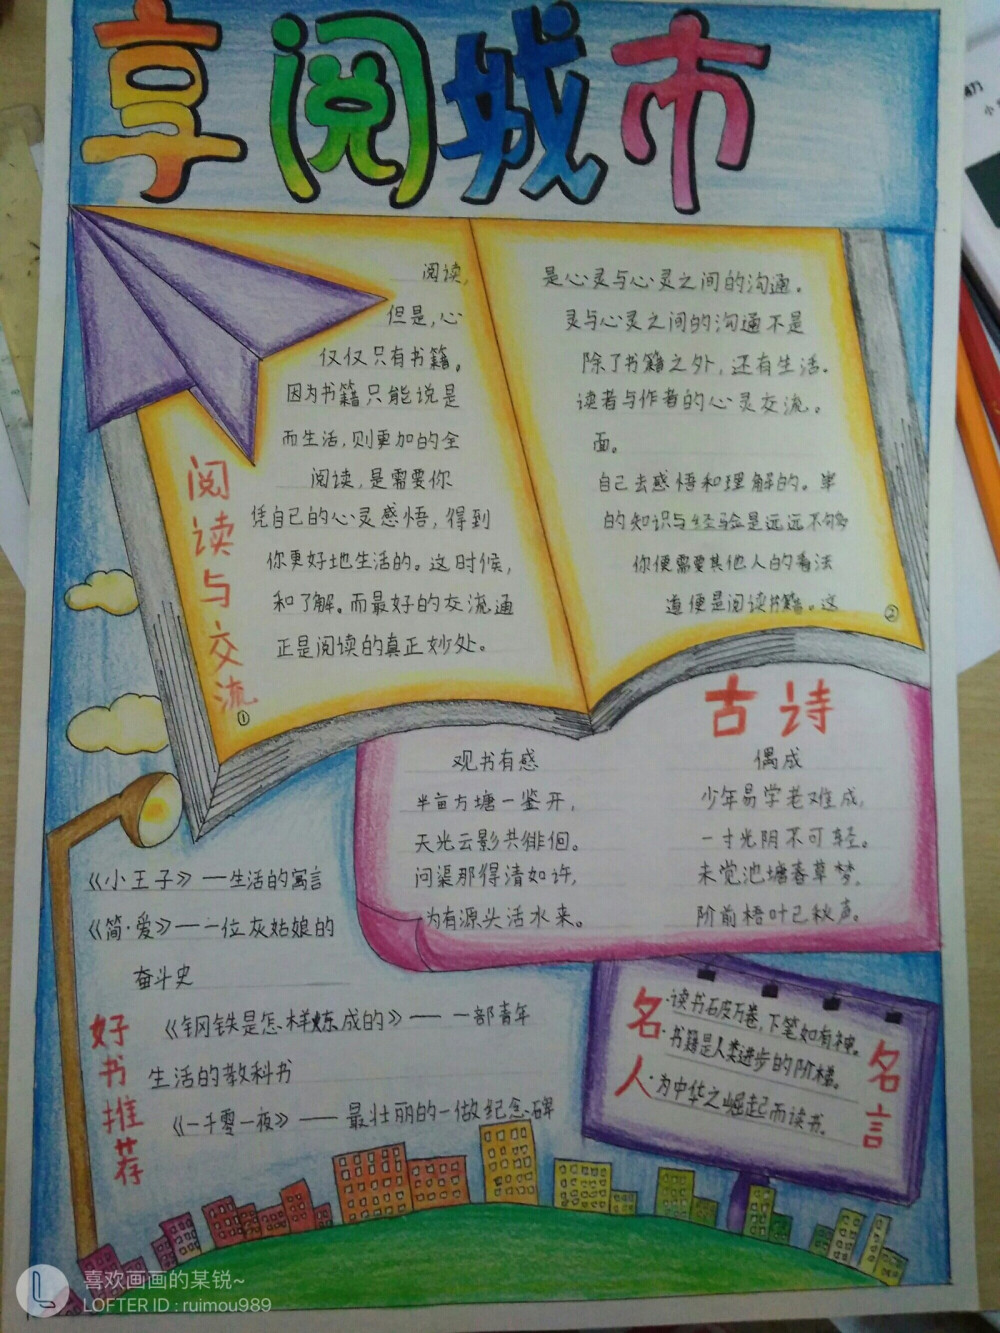 享阅城市
阅读与交流
阅读,
但是,心
仅仅只有书籍。
因为书籍只能说是
而生活,则更加的全
阅读,是需要你
凭自己的心灵感悟,得到
你更好地生活的。这时候,
和了解。而最好的交流通
正是阅读的真正妙处。
①
是心灵与心灵之间的沟通。
灵与心灵之间的沟通不是
除了书籍之外,还有生活.
读者与作者的心灵交流。
面。
自己去感悟和理解的。单
的知识与经验是远远不够
你便需要其他人的看法
道便是阅读书籍。这
②
古诗
观书有感
半亩方塘一鉴开,
天光云影共徘徊。
问渠那得清如许,
为有源头活水来。
偶成
少年易学老难成,
一寸光阴不可轻。
未觉池塘春草梦,
阶前梧叶已秋声。
好书推荐
《小王子》一生活的寓言
《简·爱》——一位灰姑娘的
奋斗史
《钢铁是怎样炼成的》——一部青年
生活的教科书
《一千零一夜》——最壮丽的一做纪念碑
名人
·读书破万卷,下笔如有神。
·书籍是人类进步的阶梯。
·为中华之崛起而读书.
名言
喜欢画画的某锐~
LOFTER ID : ruimou989